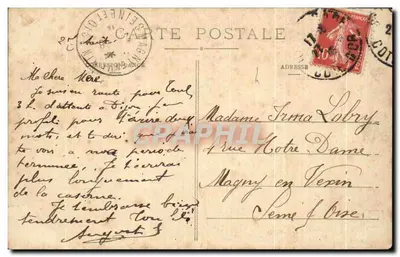 CARTE POSTALE
25 Août
ADRESSE
Ma chère Mère
Je suis en route pour Toul
3 h. d'attente à Dijon j'en
profite pour t'écrire deux
mots, et te dire
va à ma période
terminée. Je t'écrirai
plus longuement
de la caserne.
Je t'embrasse bien
tendrement Ton fils
Auguste
Madame Irma Lobry
1 Rue Notre Dame
Magny en Vexin
Seine & Oise
CPARAMA